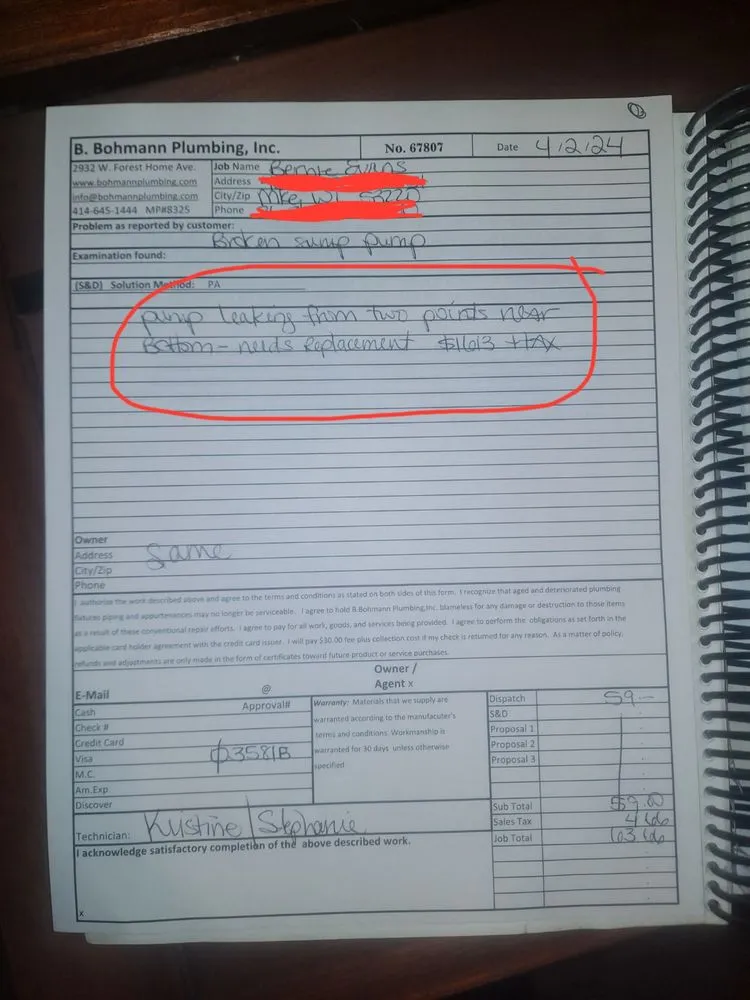 B. Bohmann Plumbing, Inc. No. 67807 Date 4/2/24
2932 W. Forest Home Ave. Job Name Bernie Evans
www.bohmannplumbing.com Address
info@bohmannplumbing.com City/Zip Mke, WI 53220
414-645-1444 MP#8325 Phone
Problem as reported by customer:
Broken sump pump
Examination found:
(S&D) Solution Method: PA
pump leaking from two points near
Bottom - needs Replacement $1613 + tAx
Owner
Address same
City/Zip
Phone
I authorize the work described above and agree to the terms and conditions as stated on both sides of this form. I recognize that aged and deteriorated plumbing
fixtures piping and appurtenances may no longer be serviceable. I agree to hold B.Bohmann Plumbing,Inc. blameless for any damage or destruction to those items
as a result of these conventional repair efforts. I agree to pay for all work, goods, and services being provided. I agree to perform the obligations as set forth in the
applicable card holder agreement with the credit card issuer. I will pay $30.00 fee plus collection cost if my check is returned for any reason. As a matter of policy,
refunds and adjustments are only made in the form of certificates toward future product or service purchases.
Owner /
Agent x
E-Mail @
Cash Approval#
Check #
Credit Card
Visa 03581B
M.C.
Am.Exp
Discover
Warranty: Materials that we supply are
warranted according to the manufacuter's
terms and conditions. Workmanship is
warranted for 30 days unless otherwise
specified
Dispatch 59-
S&D
Proposal 1
Proposal 2
Proposal 3
Sub Total 59.00
Sales Tax 4 66
Job Total 63 66
Technician: Kristine / Stephanie
I acknowledge satisfactory completion of the above described work.
x